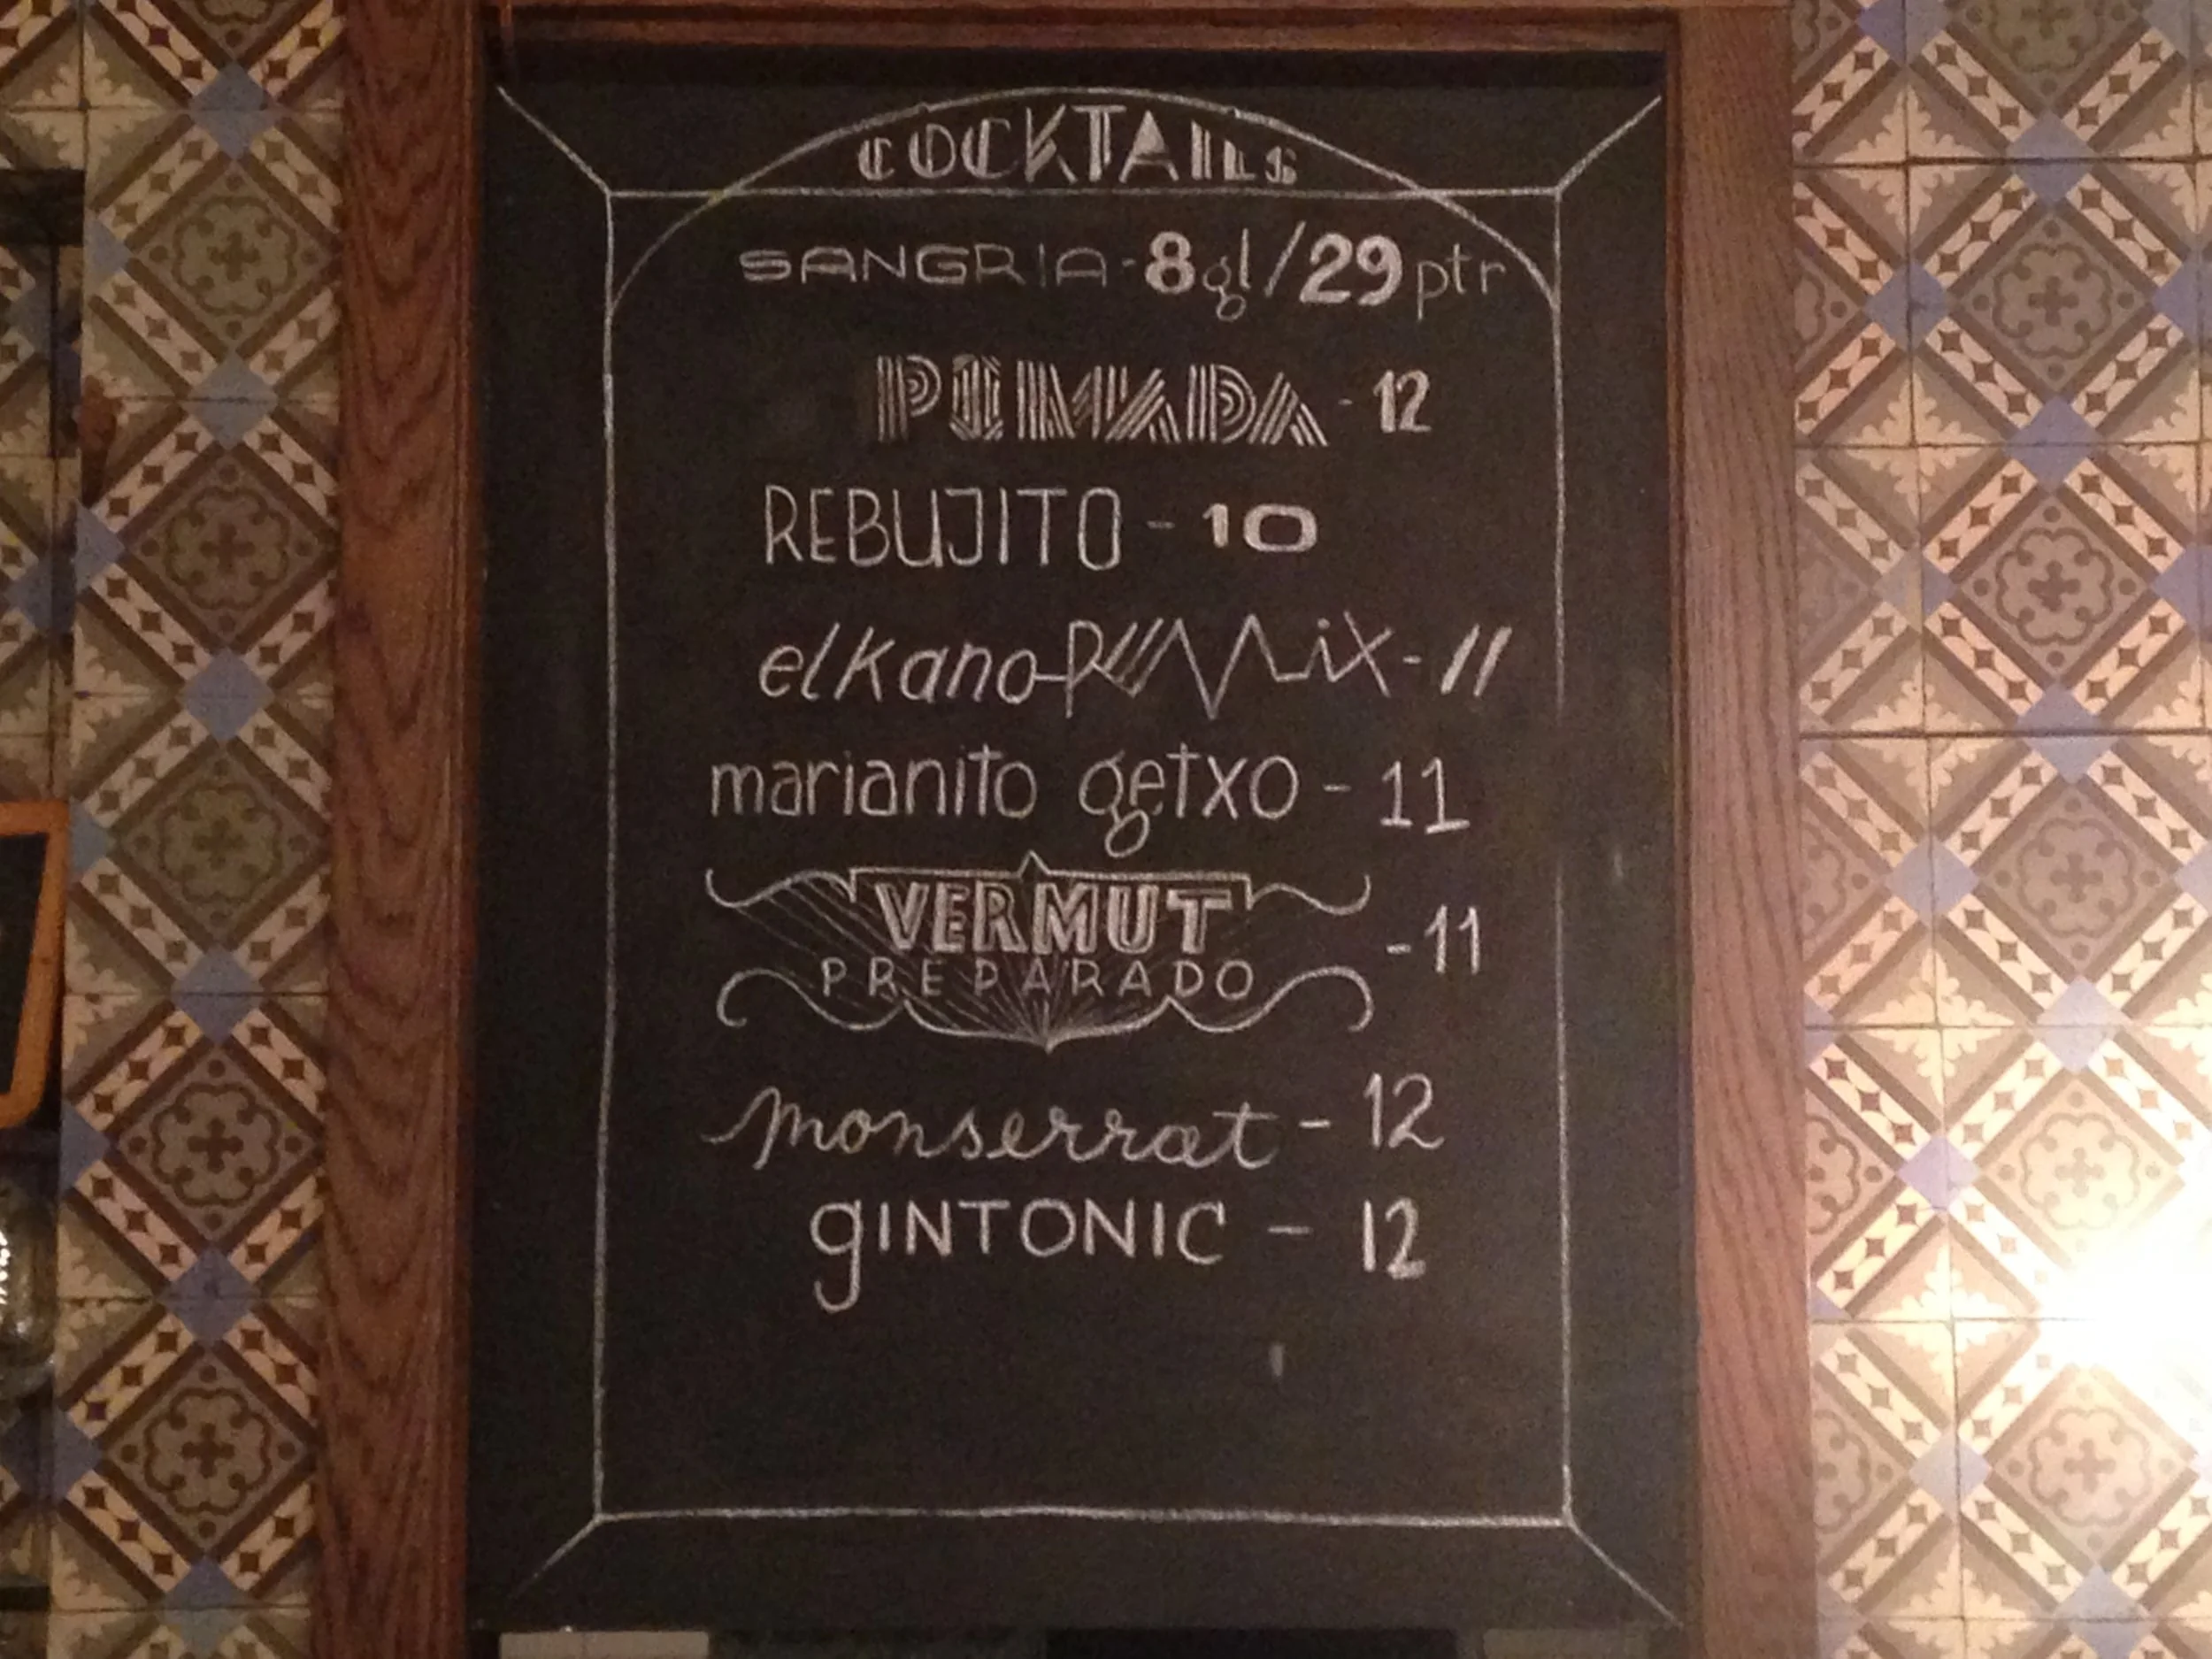 COCKTAILS
SANGRIA - 8gl/29ptr
POMADA - 12
REBUJITO - 10
elkano-REMix - 11
marianito getxo - 11
VERMUT
PREPARADO - 11
monserrat - 12
gINTONIC - 12